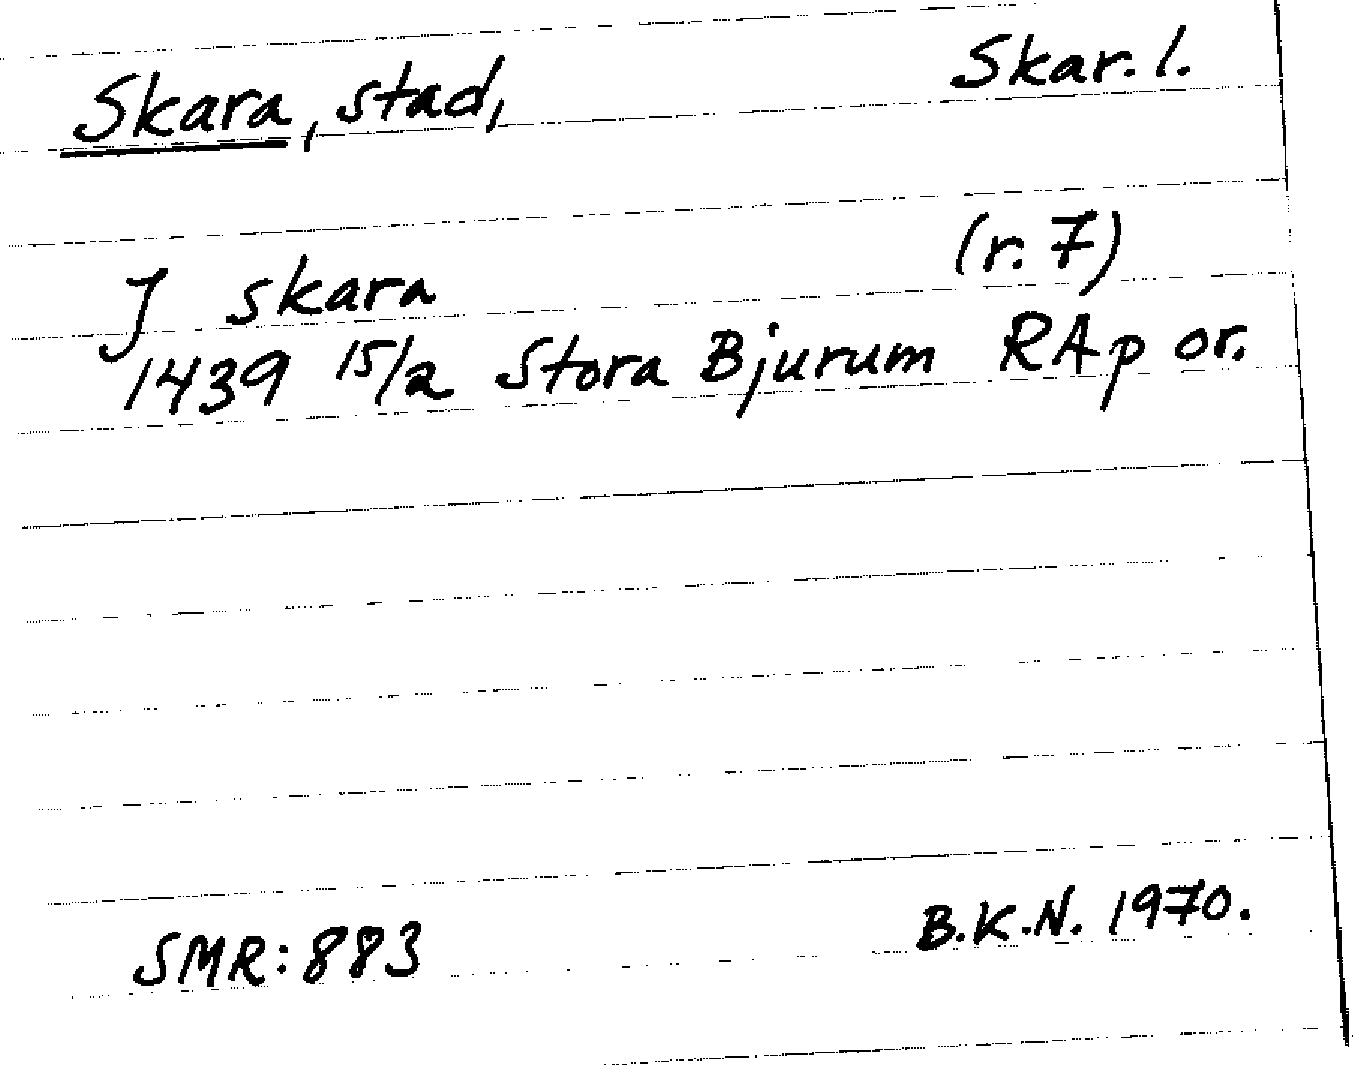 Skara, stad, Skar. l.
J skara (r. 7)
1439 15/2 Stora Bjurum RAp or.
SMR: 883 B.K.N. 1970.